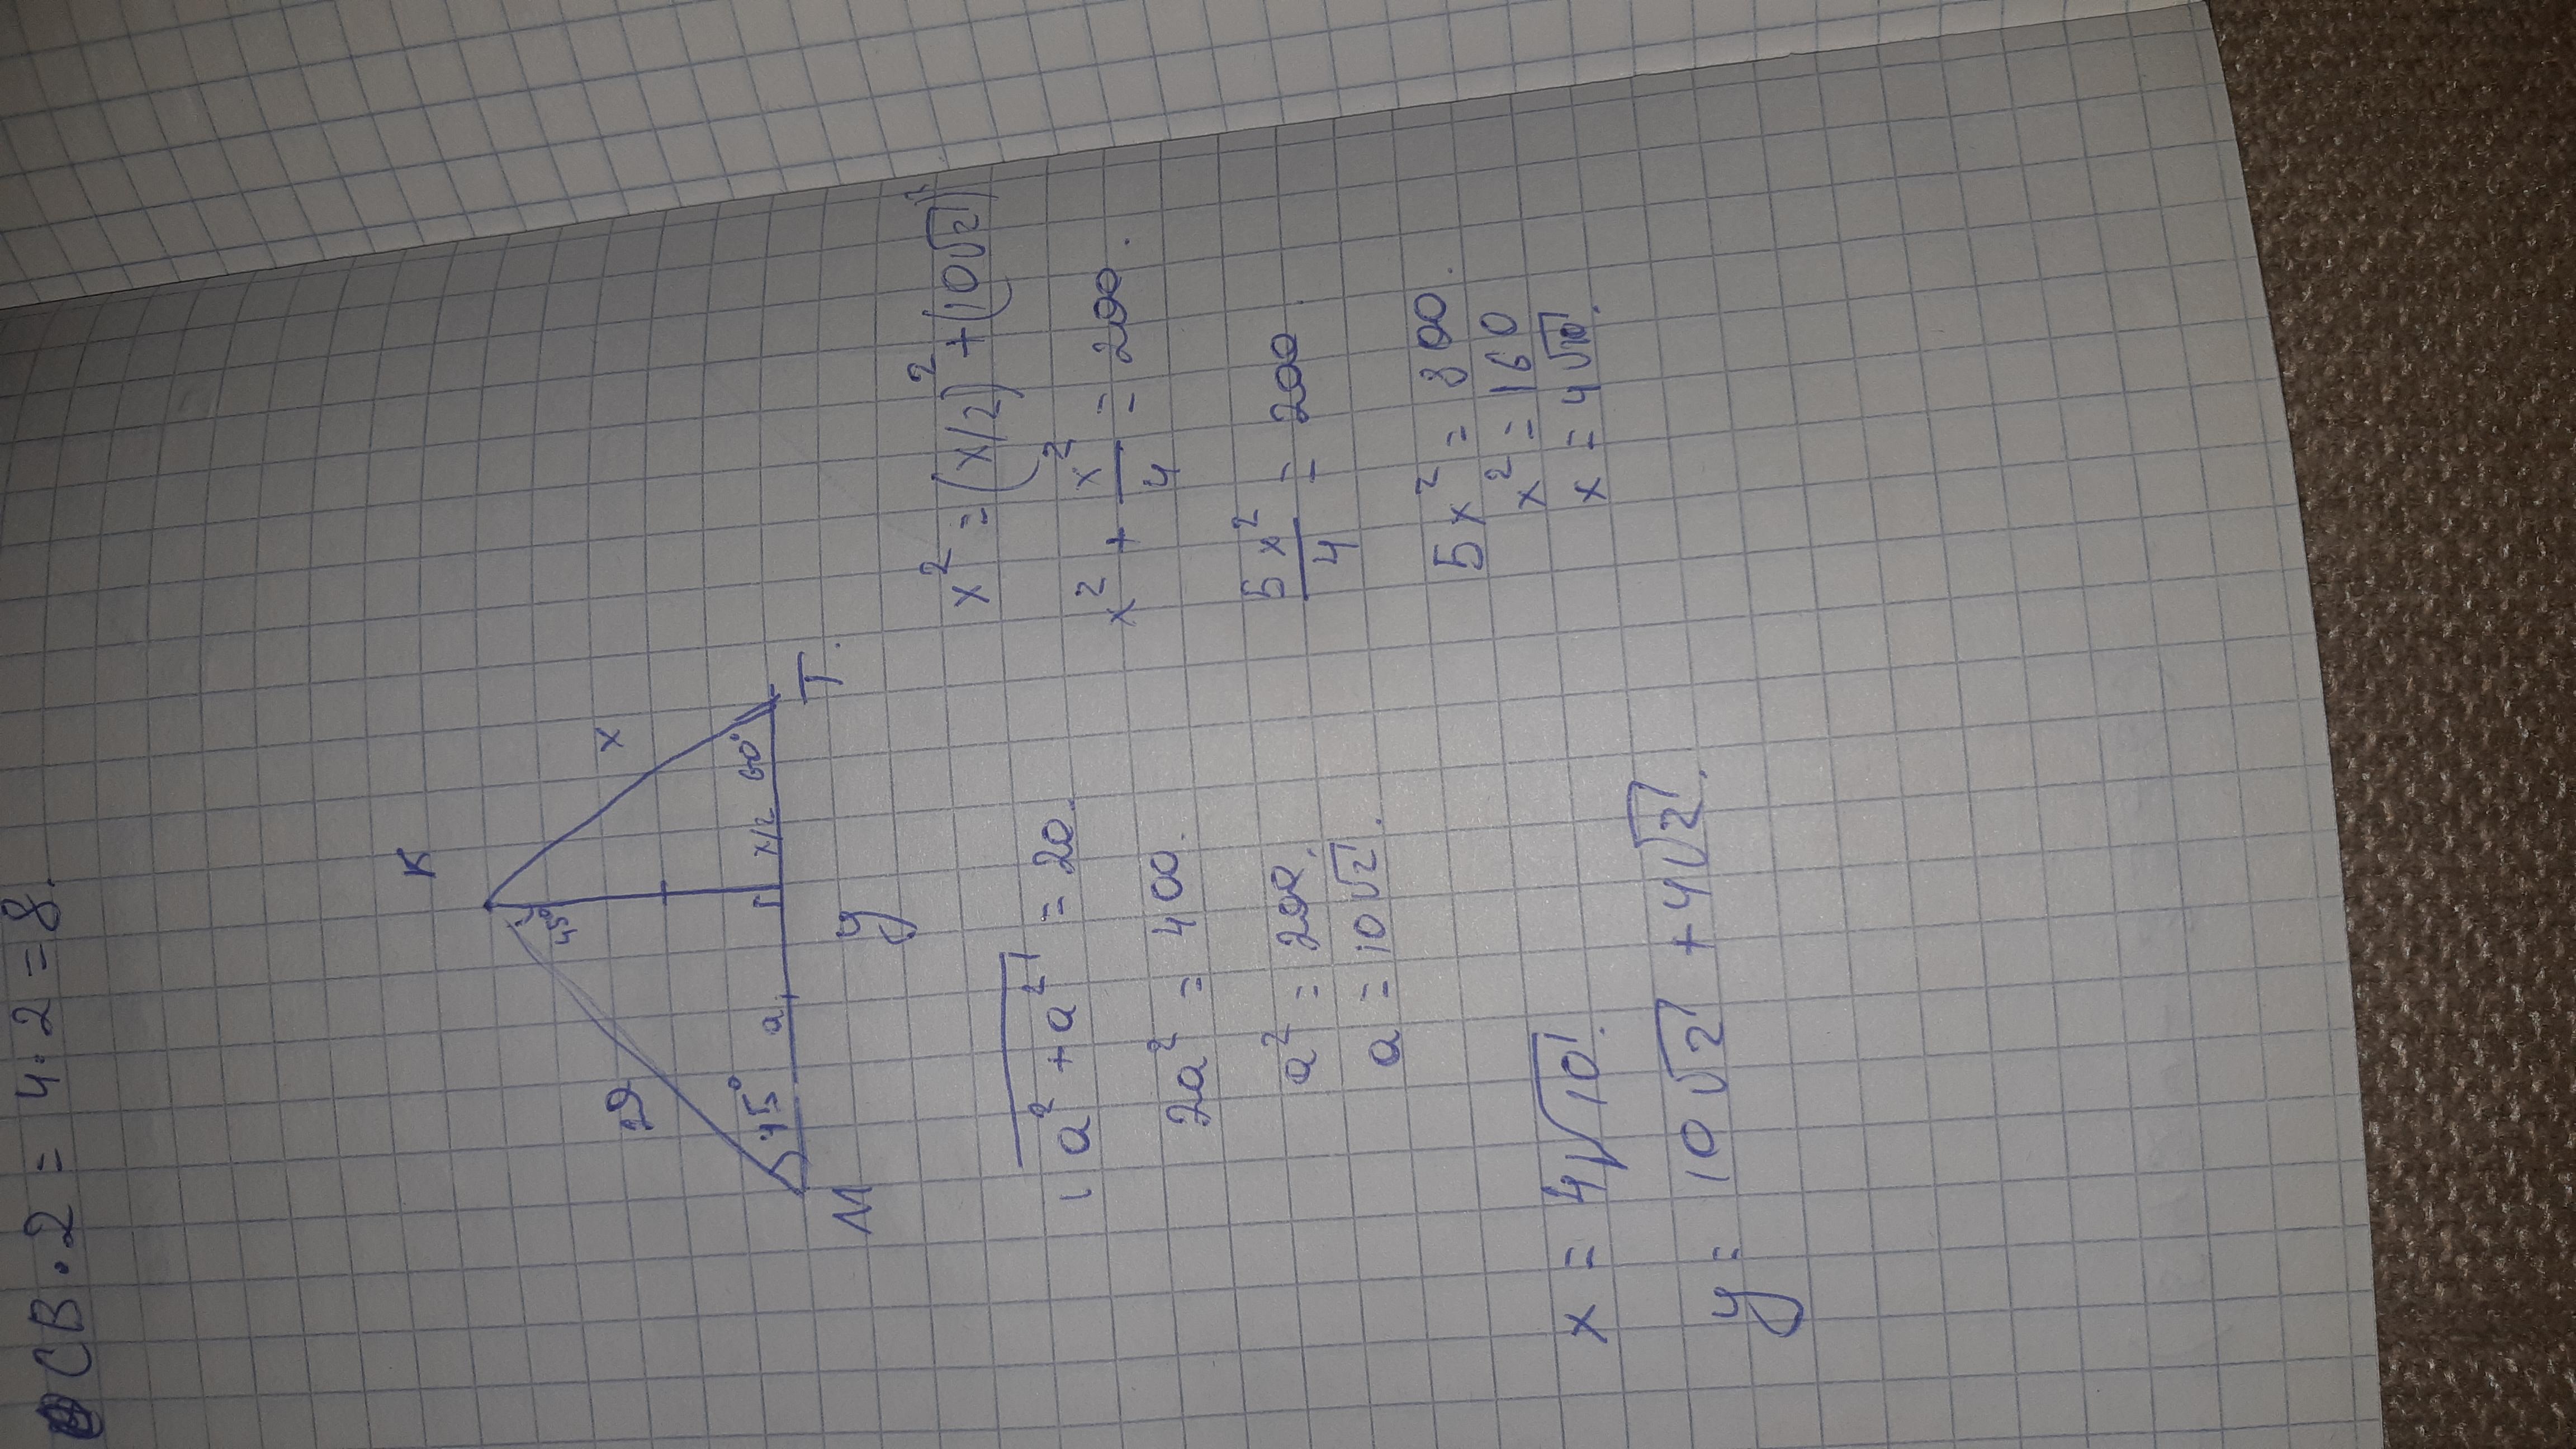 CB · 2 = 4 · 2 = 8.
K
45°
20
x
45°
a
x/2
60°
M
y
T.
√a² + a² = 20.
2a² = 400.
a² = 200.
a = 10√2.
x² = (x/2)² + (10√2)²
x² + x²/4 = 200.
5x²/4 = 200.
5x² = 800.
x² = 160
x = 4√10.
x = 4√10.
y = 10√2 + 4√2.